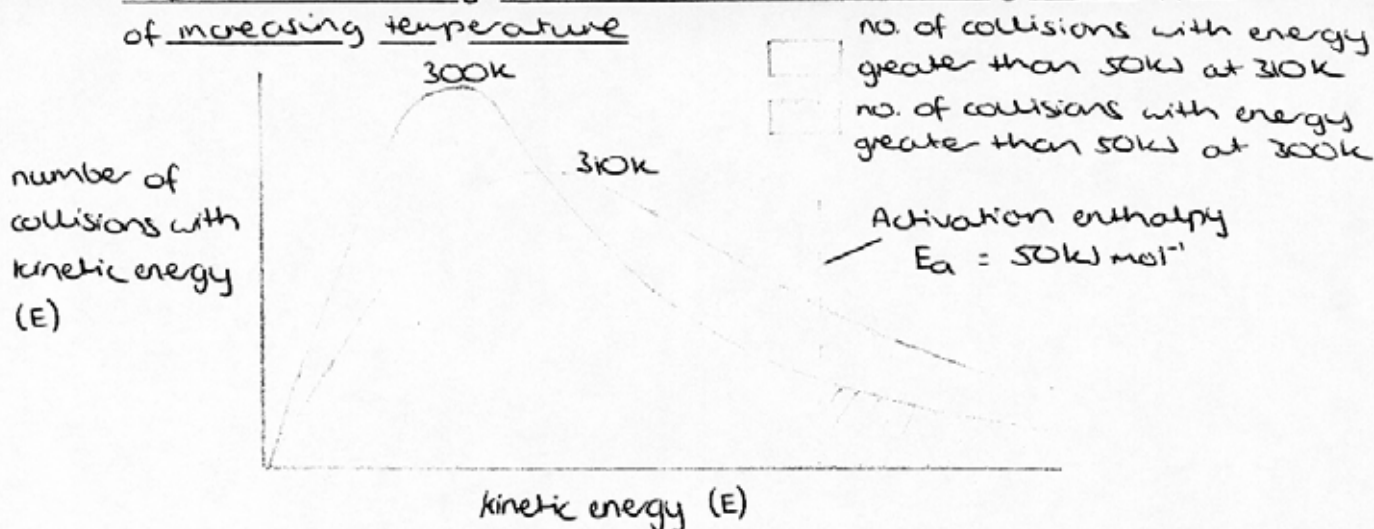 of increasing temperature
300K
no. of collisions with energy
greater than 50kJ at 310K
no. of collisions with energy
greater than 50kJ at 300K
310K
number of
collisions with
kinetic energy
(E)
Activation enthalpy
Ea = 50kJ mol⁻¹
kinetic energy (E)